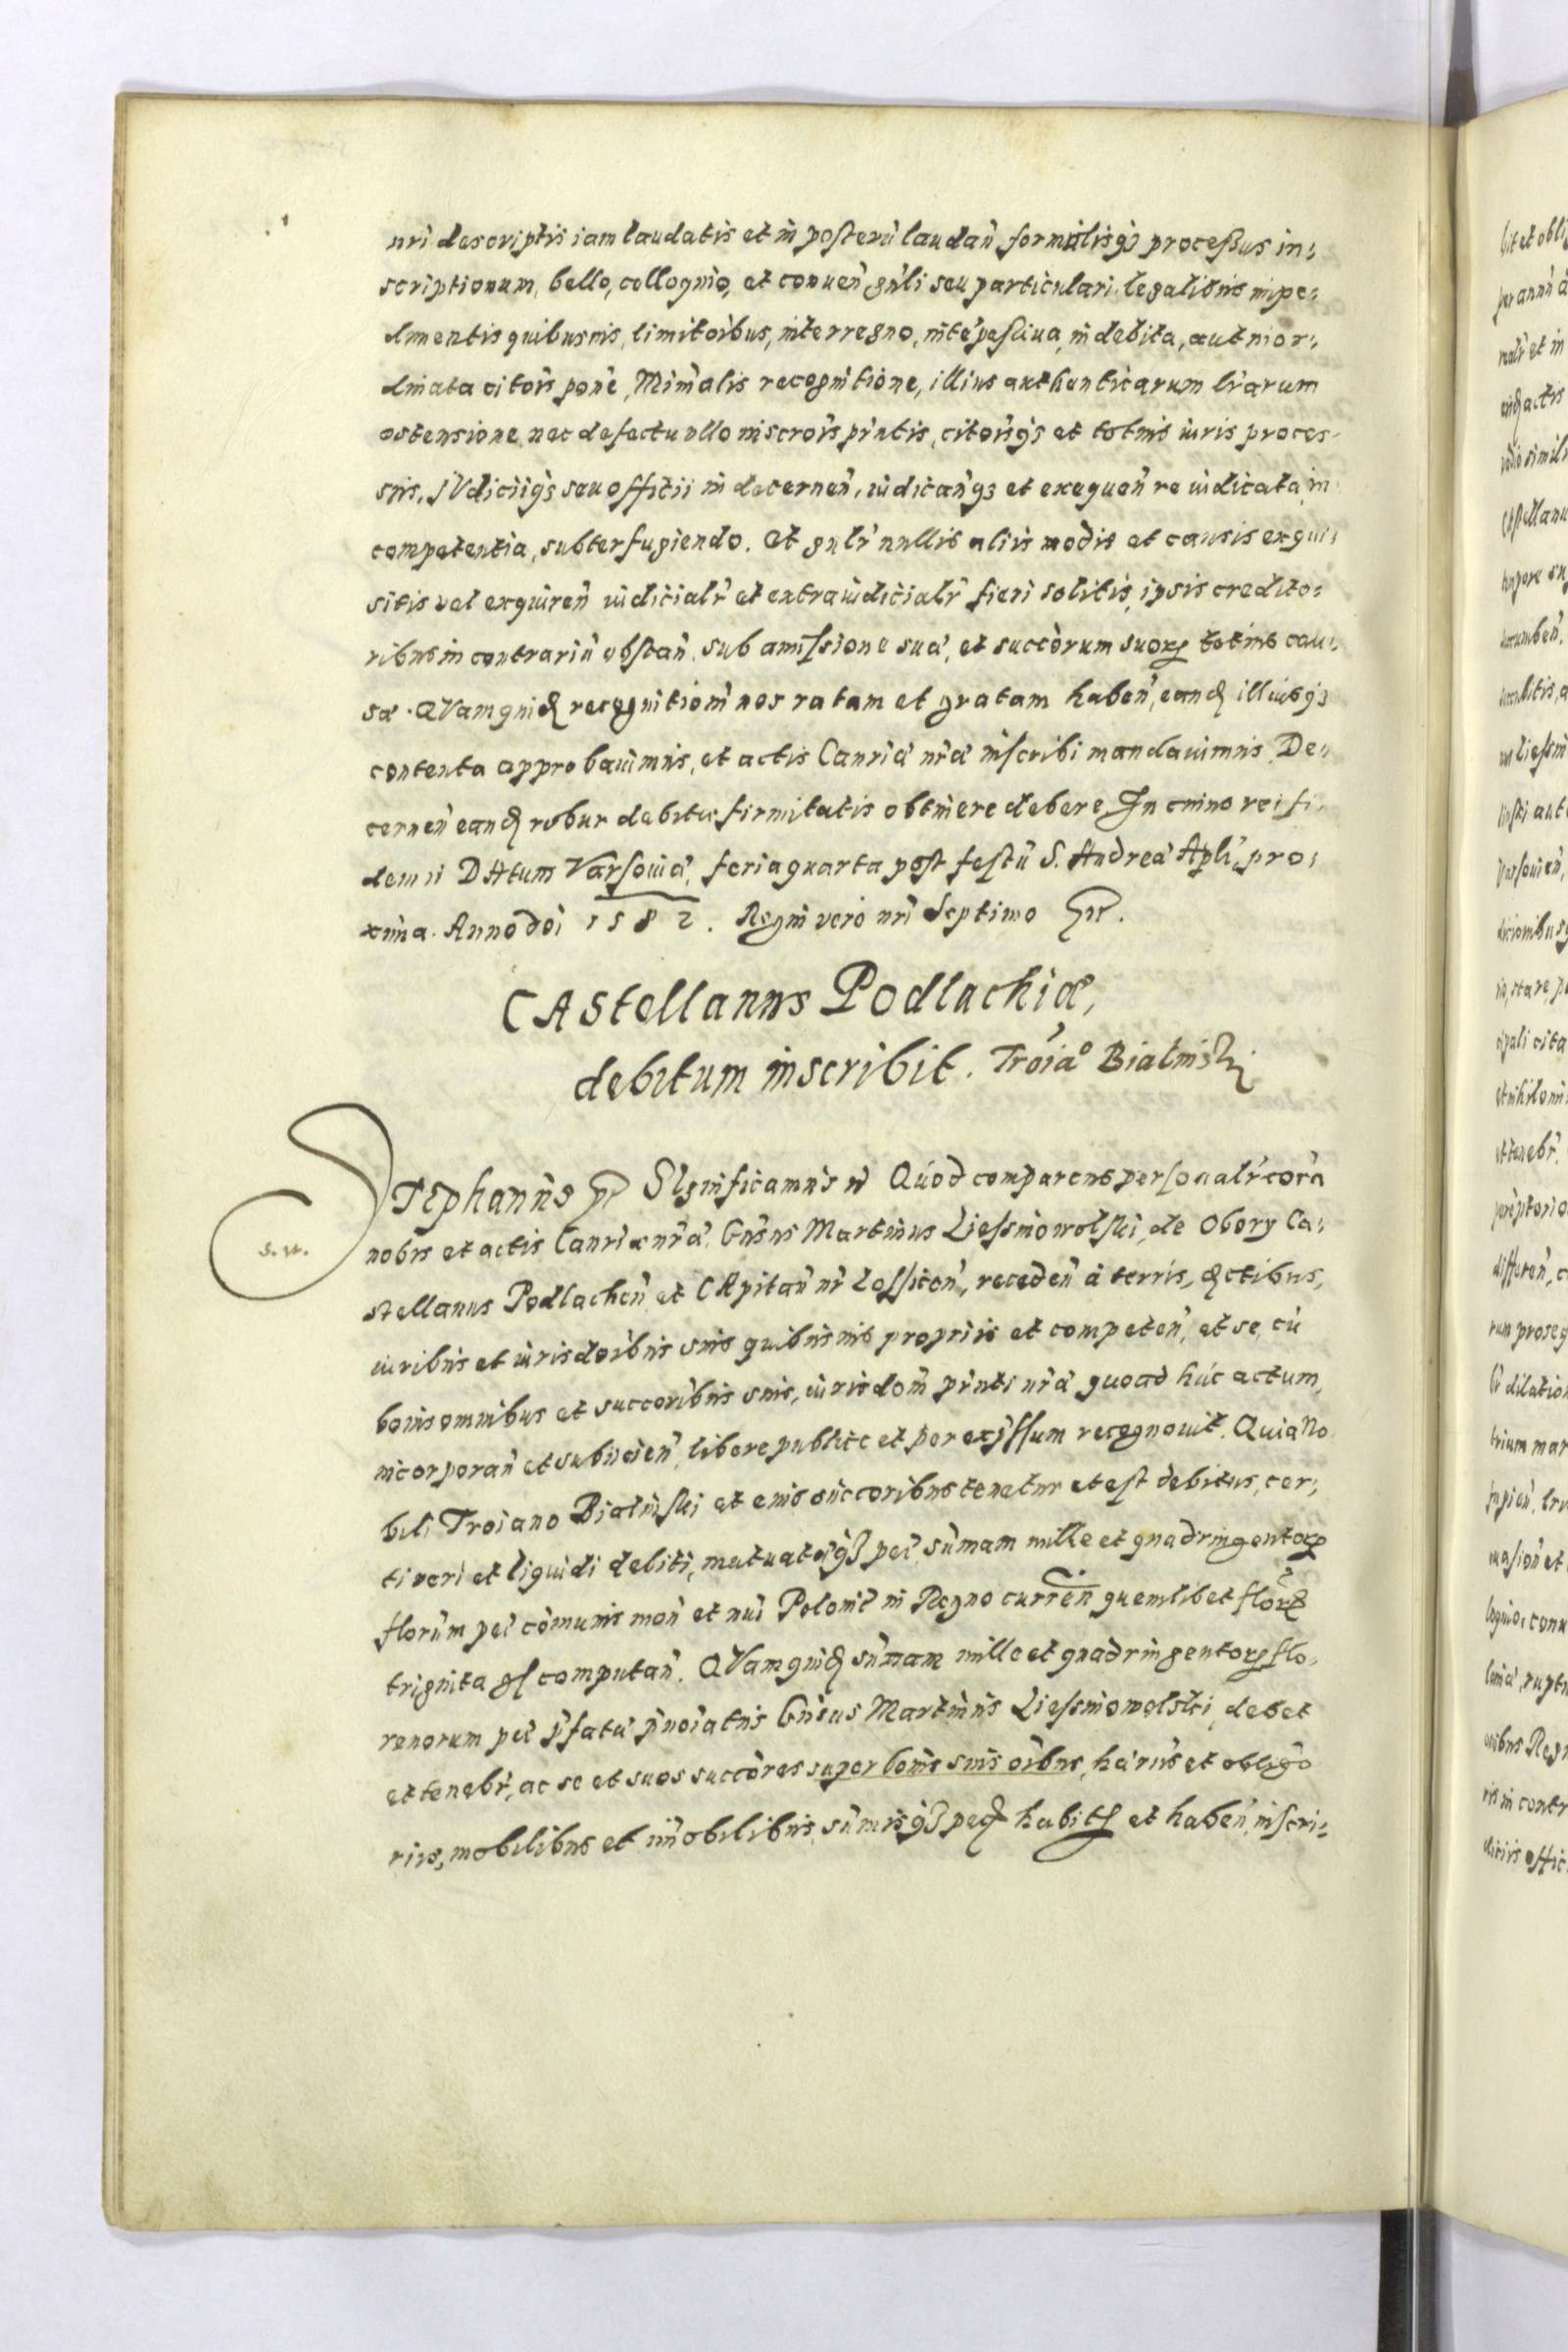 nri descriptis iam laudatis et in posterũ laudañ formalisq₃ processus in:
scriptionum, bello, colloquio, et conueñ gñli seu particulari legalibus inpe:
dimentis quibusuis, limitoibus, interregno, inte͂pestiua, indebita, aut inor:
dinata citois pone, Mimalis recognitione, illius authenticarum lrarum
ostensione, nec defectu vllo inscrois pñtis, citoisq₃ et totius iuris proces-
sus, IVdiciiq₃ seu officii in decerneñ, iudicañq₃ et exequeñ re iudicata, in
competentia, subterfugiendo. Et gnlr nullis aliis modis et causis exqui:
sitis vel exquireñ iudicialr et extraiudicialr fieri solitis, ipsis credito:
ribus in contrariũ obstañ. sub amissione sua, et succorum suoꝝ totius cau:
sæ. QVamquidẽ recognitioñ nos ratam et gratam habeñ, eandẽ illiusq₃
contenta approbauimus, et actis Canriæ nræ inscribi mandauimus. De:
cerneñ eandẽ robur debitæ firmitatis obtinere debere. In cuius rei fi:
dem ɲ DAtum Varsouiæ, feria quarta post festũ S. Andreæ Apli, pro:
xima. Anno doi 1582. Regni vero nri Septimo
CAstellanus Podlachiæ,
debitum inscribit. Troiaº Bialinsk̃i
STephanus Significamus ɲ Quod comparens personalr corã
s. n.
nobis et actis Canriæ nræ, Gñsus Martinus Liessniowolski, de Obory Ca:
stellanus Podlacheñ et CApitañ nr Lossiceñ, recedeñ à terris, dictibus,
iuribus et iurisdoibus suis quibusuis propriis et competeñ, et se, cũ
bonis omnibus et succoribus suis, iurisdoñ pñti nræ quoad hũc actum,
incorporañ et subiicieñ, libere publice et per expssum recognouit. Quia No
bili Troiano Bialinski et eius succoribus tenetur et est debitus, cer:
ti veri et liquidi debiti, mutuatæq₃ pec sũmam mille et quadringentoꝝ
florũm pec cõmunis moñ et nui Polonic in Regno curreñ quemlibet floꝝ
triginta gʃ computañ. QVamquidẽ sũmam mille et quadringentoꝝ flo:
renorum pec pfatæ pnoiatus Gñsus Martinus Liessniowolski, debet
et tenebr, ac se et suos succores super bonis suis oibus, hariis et obligo
riis, mobilibus et iñobilibus, sũmisq₃ pecũ habitʃ et habeñ, inscri: